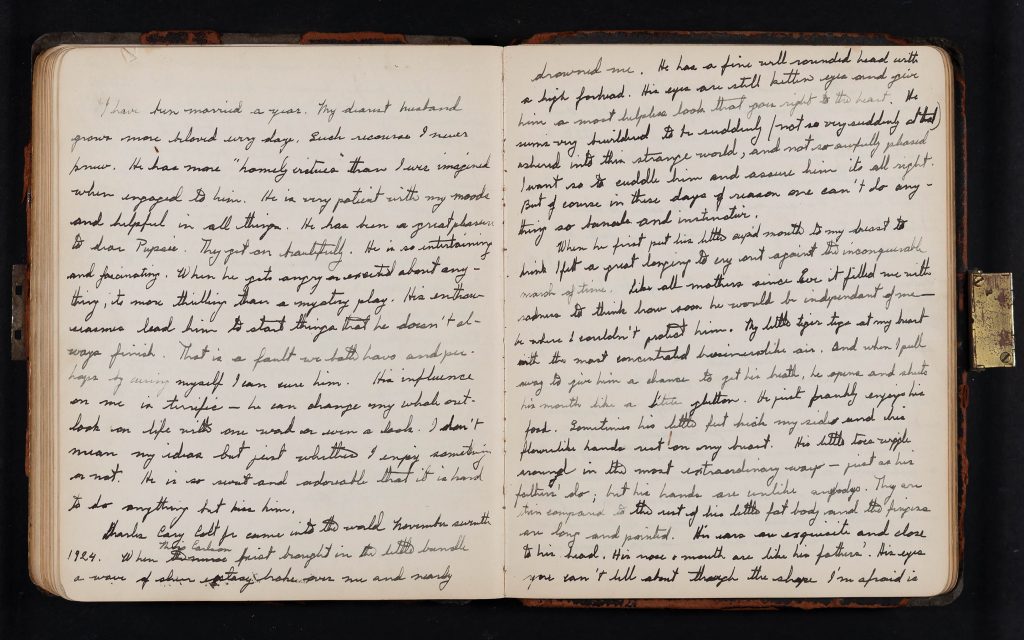 I have been married a year. My dearest husband
grows more beloved every day. Such recourse I never
knew. He has more "homely virtues" than I ever imagined
when engaged to him. He is very patient with my moods
and helpful in all things. He has been a great pleasure
to dear Pupsie. They get on beautifully. He is so entertaining
and fascinating. When he gets angry or excited about any-
thing, its more thrilling than a mystery play. His enthu-
siasms lead him to start things that he doesn't al-
ways finish. That is a fault we both have and per-
haps by curing myself I can cure him. His influence
on me is terrific — he can change my whole out-
look on life with one word or even a look. I don't
mean my ideas but just whether I enjoy something
or not. He is so sweet and adorable that it is hard
to do anything but kiss him.
Charles Cary Colt jr came into the world November seventh
1924. When Miss Carlson first brought in the little bundle
a wave of sheer ecstasy broke over me and nearly
drowned me. He has a fine well rounded head with
a high forhead. His eyes are still kitten eyes and give
him a most helpless look that goes right to the heart. He
seems very bewildered to be suddenly (not so very suddenly at that)
ushered into this strange world, and not so awfully pleased
I want so to cuddle him and assure him its all right.
But of course in these days of reason one can't do any-
thing so banale and instinctive.
When he first put his little avid mouth to my breast to
drink I felt a great longing to cry out against the inconquerable
march of time. Like all mothers since Eve it filled me with
sadness to think how soon he would be independant of me —
be where I couldn't protect him. My little tiger tugs at my breast
with the most concentrated businesslike air. And when I pull
away to give him a chance to get his breath, he opens and shuts
his mouth like a little glutton. He just frankly enjoys his
food. Sometimes his little feet kick my side and his
flowerlike hands rest on my breast. His little toes wiggle
around in the most extraordinary way — just as his
fathers' do; but his hands are unlike anybodys. They are
thin compared to the rest of his little fat body and the fingers
are long and pointed. His ears are exquisite and close
to his head. His nose & mouth are like his fathers'. His eyes
you can't tell about though the shape I'm afraid is